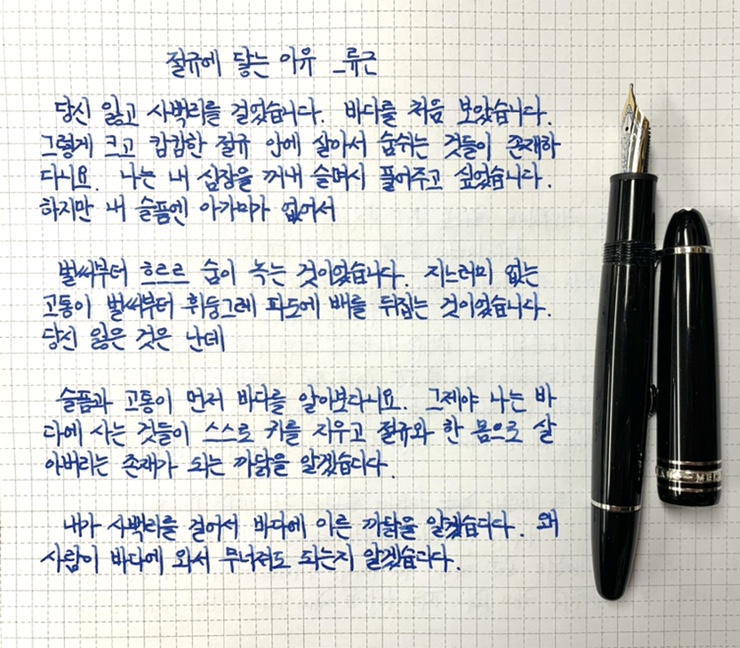 절규에 닿는 이유 _류근
당신 잃고 사백리를 걸었습니다. 바다를 처음 보았습니다.
그렇게 크고 캄캄한 절규 안에 살아서 숨쉬는 것들이 존재하
다니요. 나는 내 심장을 꺼내 슬며시 풀어주고 싶었습니다.
하지만 내 슬픔엔 아가미가 없어서
벌써부터 흐르르 숨이 녹는 것이었습니다. 지느러미 없는
고통이 벌써부터 휘둥그레 파도에 배를 뒤집는 것이었습니다.
당신 잃은 것은 난데
슬픔과 고통이 먼저 바다를 알아보다니요. 그제야 나는 바
다에 사는 것들이 스스로 키를 지우고 절규와 한 몸으로 살
아버리는 존재가 되는 까닭을 알겠습디다.
내가 사백리를 걸어서 바다에 이른 까닭을 알겠습디다. 왜
사람이 바다에 와서 무너져도 되는지 알겠습디다.